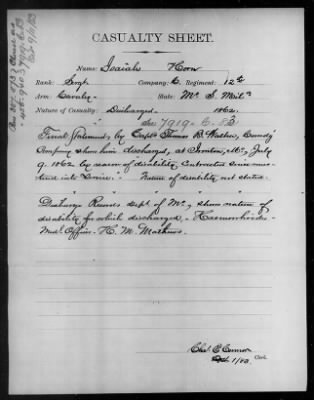 CASUALTY SHEET.
Name: Isaiah Horn
Rank: Sergt Company: C Regiment: 12th
Arm: Cavalry State: Mo. S. Mil.
Nature of Casualty: Discharged 1862.
See 7919-C-83
Final Statement, by Capt. Thomas B.
Company shows him discharged, at Ironton, Mo., July
9. 1862 by reason of disability, Contracted since mus-
tered into Service". Nature of disability not stated.
Discharge Records dept of Mo., shows nature of
disability for which discharged, - Haemorrhoids.
Med. Officer. H. M. Mathews.
Clerk.